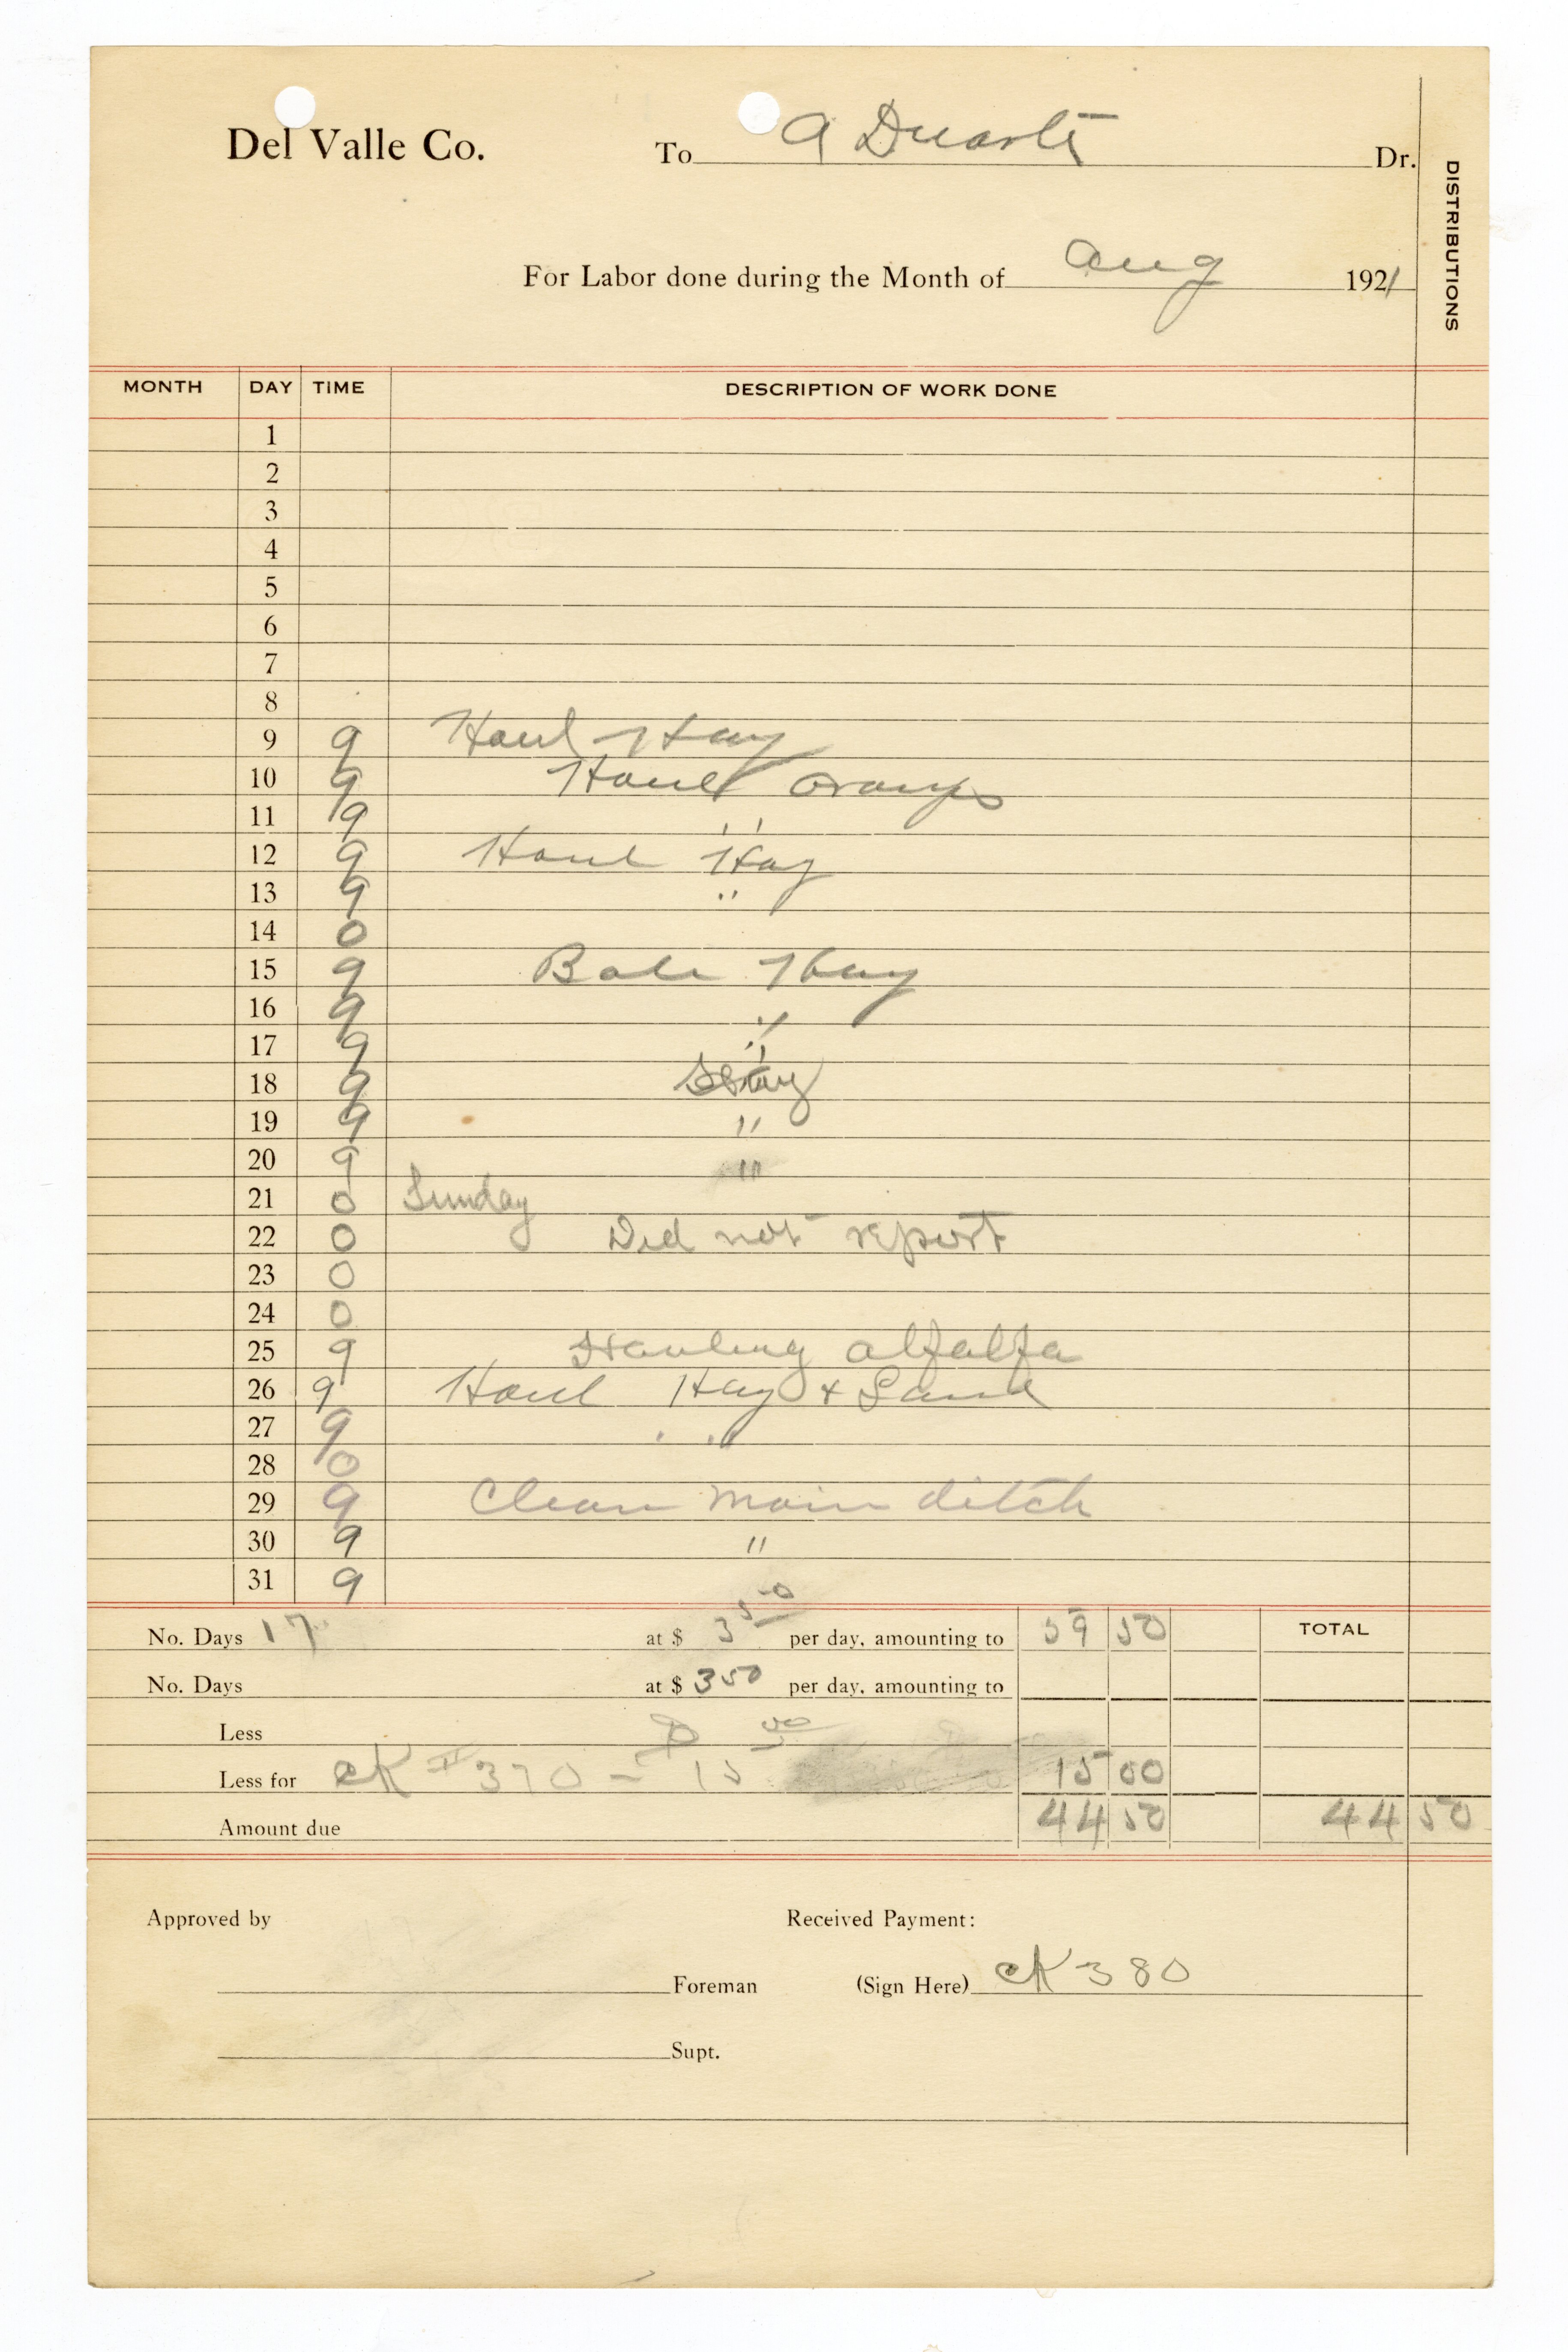 Del Valle Co. To A Duarte Dr.
DISTRIBUTIONS
For Labor done during the Month of Aug 1921
MONTH DAY TIME DESCRIPTION OF WORK DONE
1
2
3
4
5
6
7
8
9 9 Haul Hay
10 9 Haul oranges
11 9 ''
12 9 Haul Hay
13 9 ''
14 0
15 9 Bale Hay
16 9 ''
17 9 ''
18 9 Hay
19 9 ''
20 9 ''
21 0 Sunday
22 0 Did not report
23 0
24 0
25 9 Hauling alfalfa
26 9 Haul Hay + Sand
27 9 ''
28 0
29 9 Clean main ditch
30 9 ''
31 9
No. Days 17 at $ 3 50 per day, amounting to 59 50 TOTAL
No. Days at $ 3 50 per day, amounting to
Less
Less for CK # 370 - 15 00 15 00
Amount due 44 50 44 50
Approved by Received Payment:
Foreman (Sign Here) CK 380
Supt.